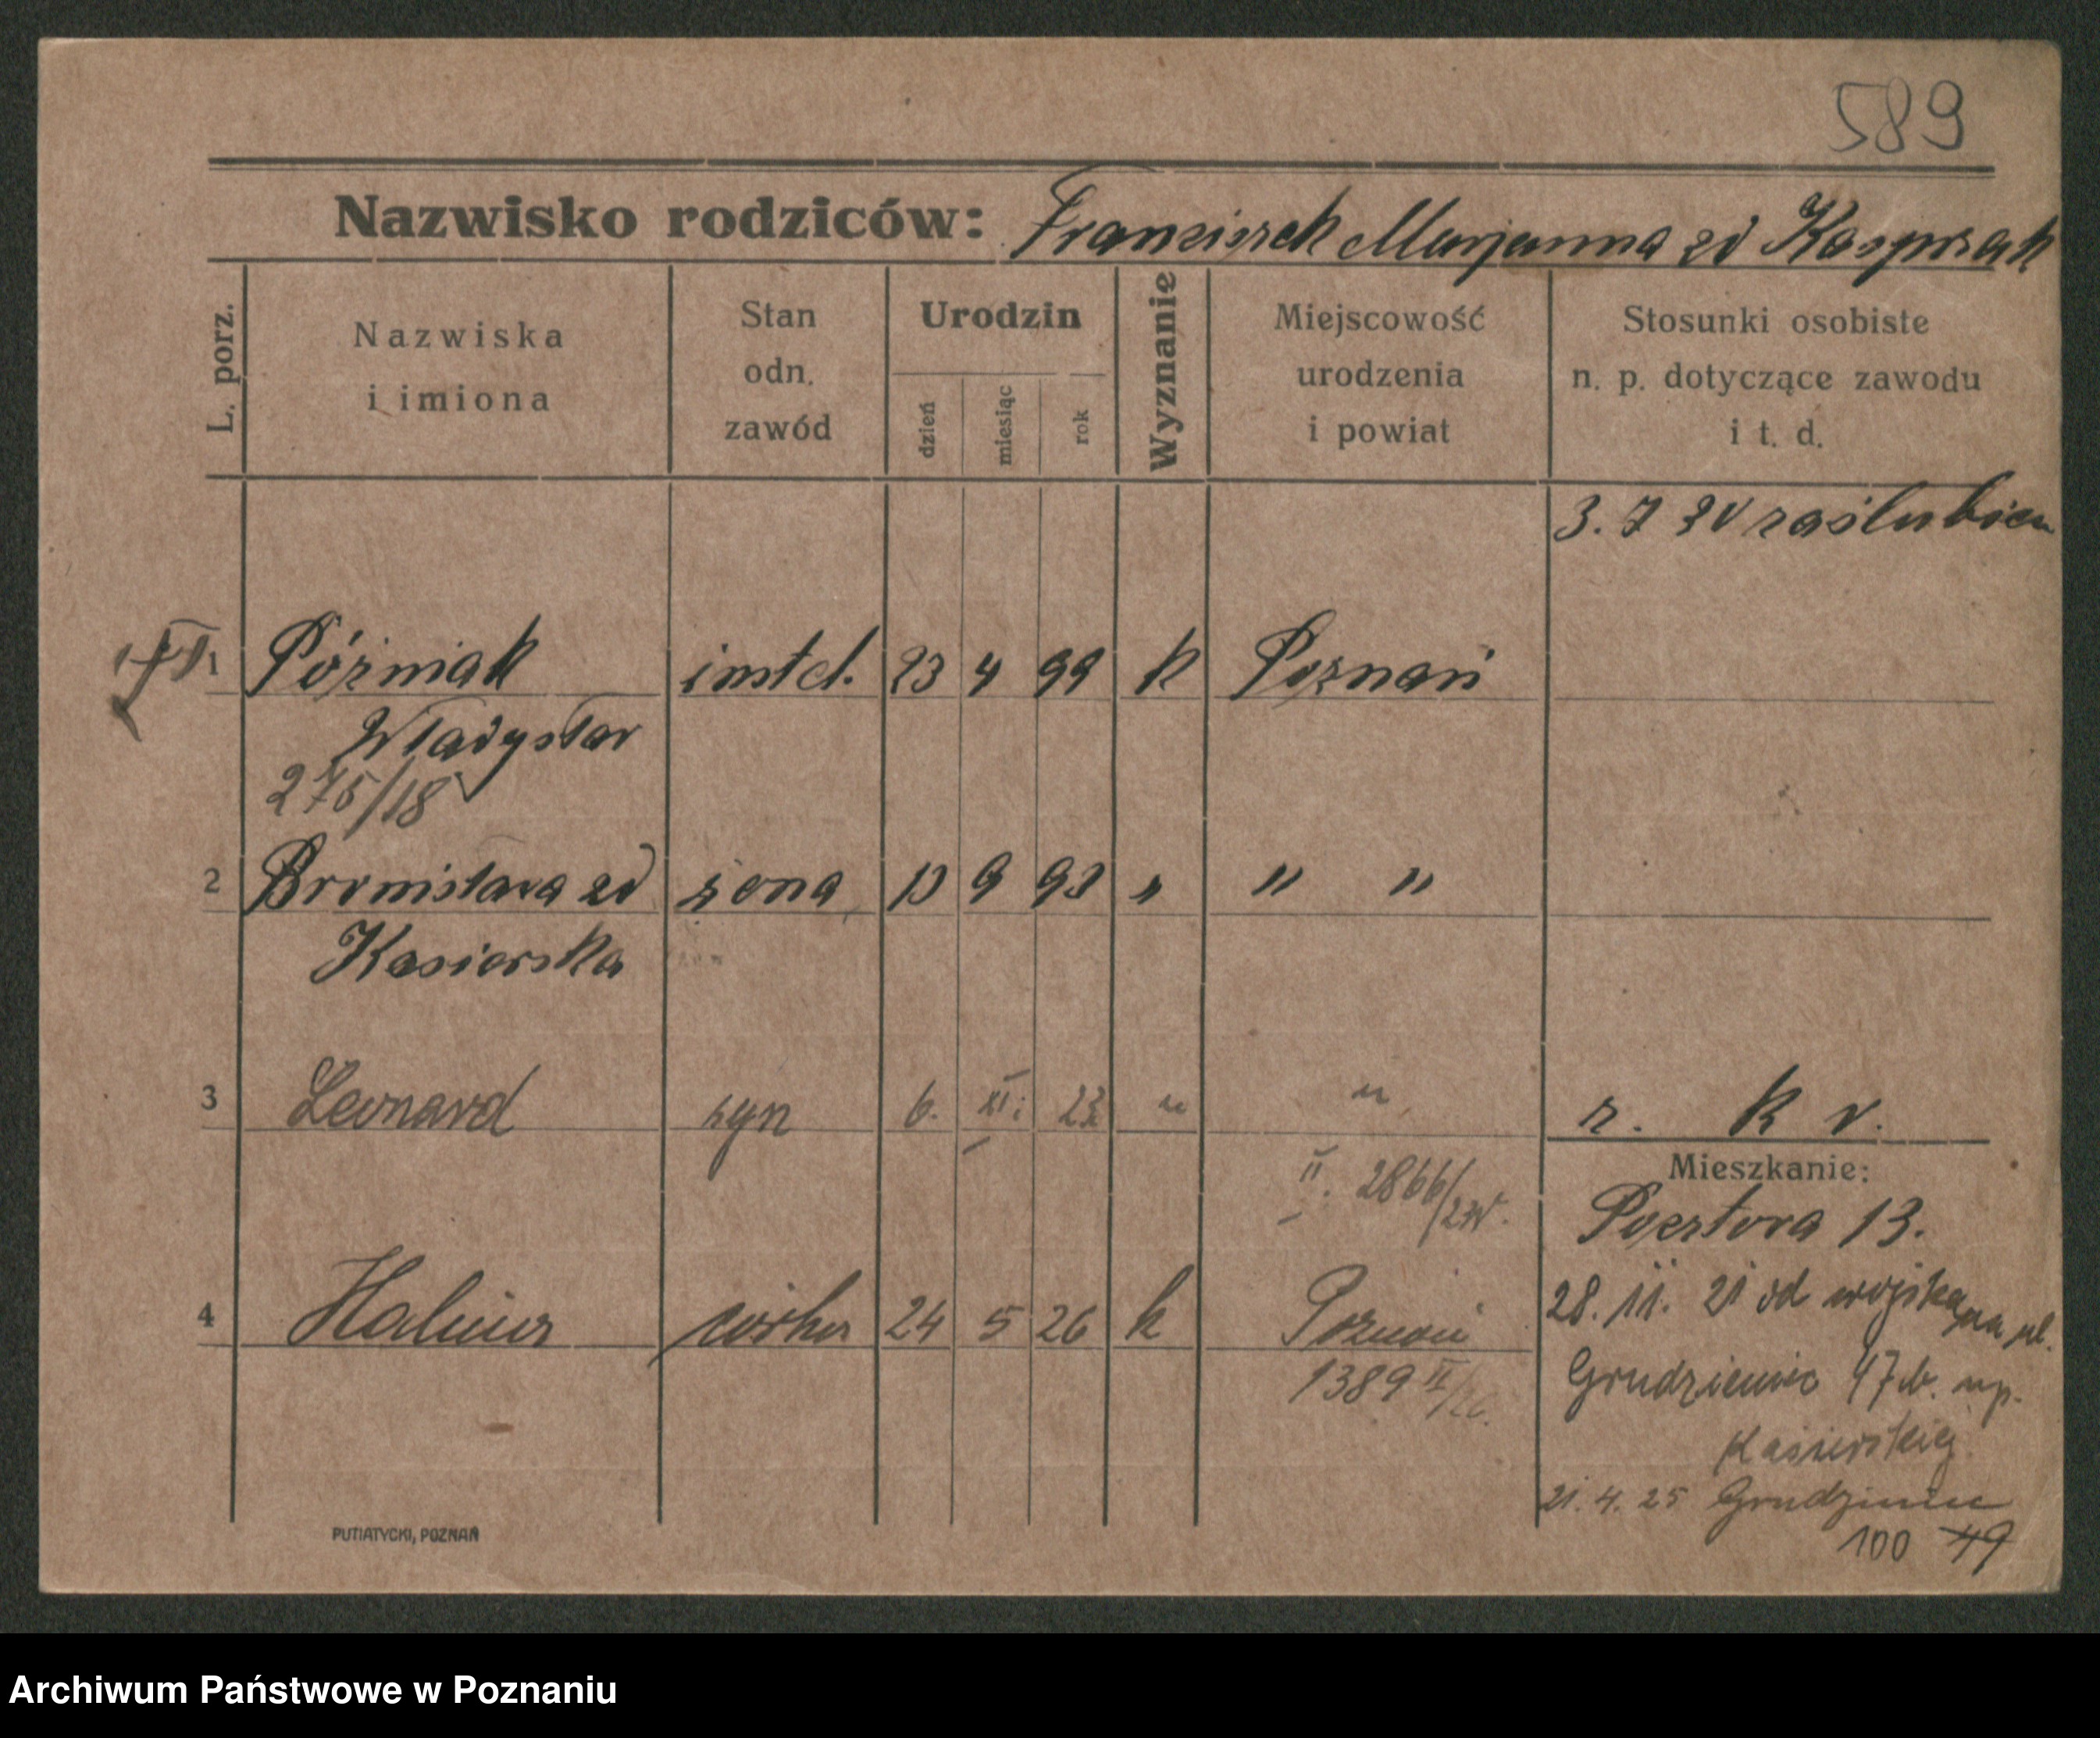 589
Nazwisko rodziców: Franciszek Marjanna zd Kasprzak
L. porz.
Nazwiska i imiona
Stan odn. zawód
Urodzin
dzień miesiąc rok
Wyznanie
Miejscowość urodzenia i powiat
Stosunki osobiste n. p. dotyczące zawodu i t. d.
3. 7 20 zaślubien
1 Póżniak instal. 23 4 99 k Poznań
Władysław
275/18
2 Bronisława zd żona 13 9 98 " " "
Kasierska
3 Leonard syn 6. XI. 23 " "
r. k v.
Mieszkanie:
II. 2866/23
Pocztowa 13.
28. 11. 21 od wojska na ul.
4 Halina córka 24 5 26 k Poznań
1389 II/26.
Grudzieniec 47 b. np.
Kasierskiej
21. 4. 25 Grudzieniec
100 49
PUTIATYCKI, POZNAŃ
Archiwum Państwowe w Poznaniu